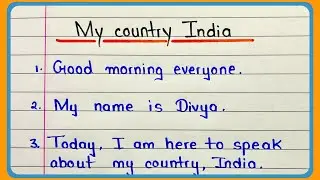 My country India
1. Good morning everyone.
2. My name is Divya.
3. Today, I am here to speak
about my country, India.